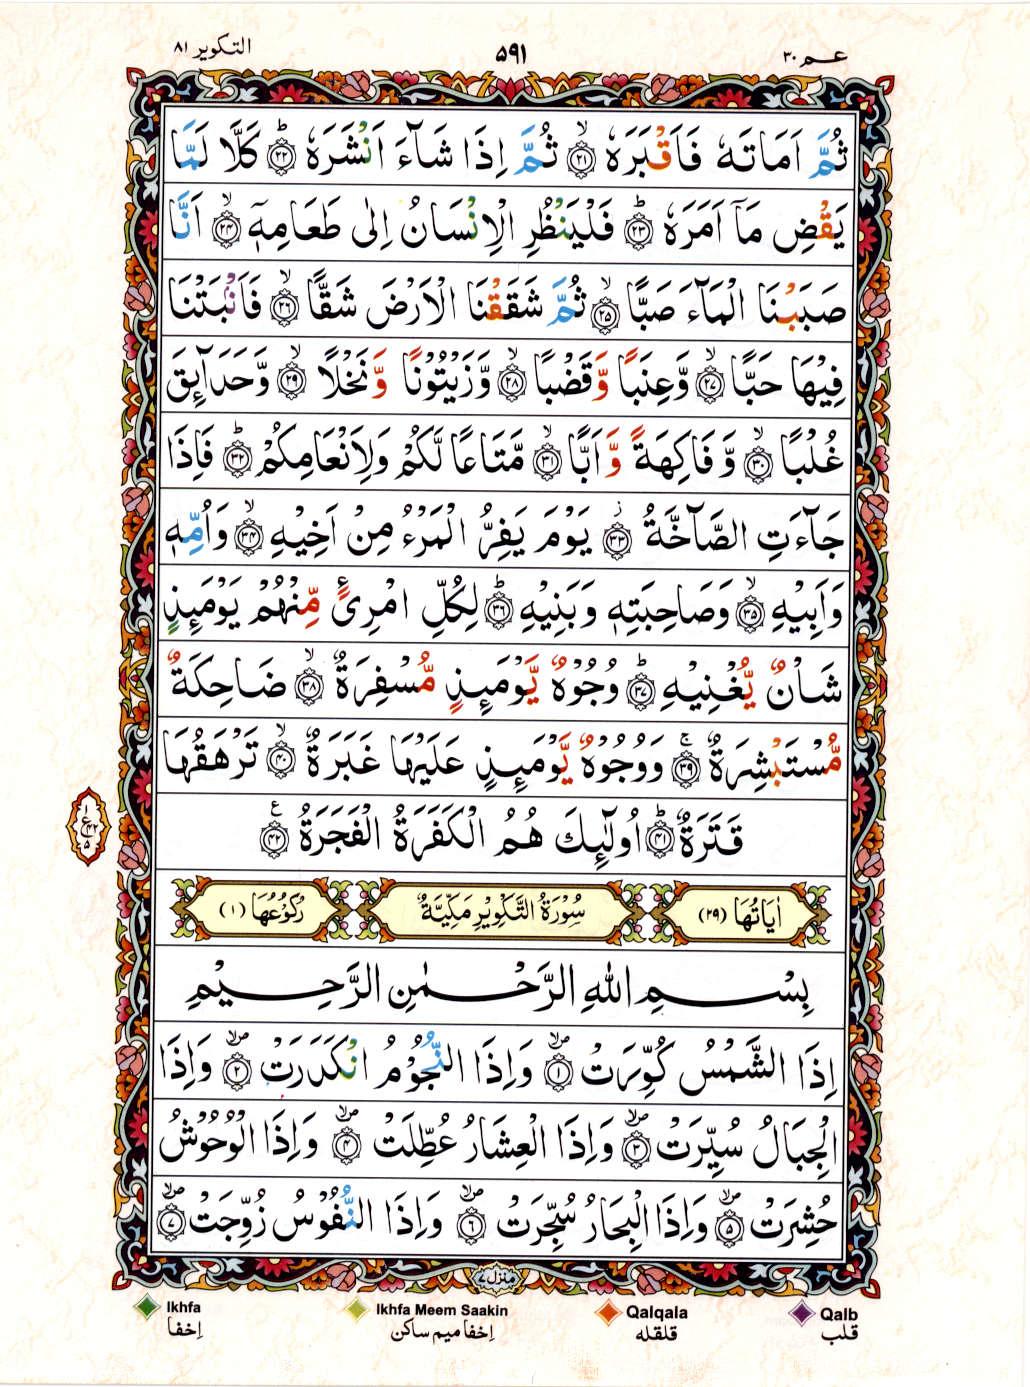 التکویر ٨١
٥٩١
عـم ٣٠
ثُمَّ اَمَاتَهٗ فَاَقْبَرَهٗ ۙ﴿٢١﴾ ثُمَّ اِذَا شَآءَ اَنْشَرَهٗ ؕ﴿٢٢﴾ كَلَّا لَمَّا
يَقْضِ مَاۤ اَمَرَهٗ ؕ﴿٢٣﴾ فَلْيَنْظُرِ الْاِنْسَانُ اِلٰى طَعَامِهٖۤ ۙ﴿٢٤﴾ اَنَّا
صَبَبْنَا الْمَآءَ صَبًّا ۙ﴿٢٥﴾ ثُمَّ شَقَقْنَا الْاَرْضَ شَقًّا ۙ﴿٢٦﴾ فَاَنْۢبَتْنَا
فِيْهَا حَبًّا ۙ﴿٢٧﴾ وَّعِنَبًا وَّقَضْبًا ۙ﴿٢٨﴾ وَّزَيْتُوْنًا وَّنَخْلًا ۙ﴿٢٩﴾ وَّحَدَآئِقَ
غُلْبًا ۙ﴿٣٠﴾ وَّفَاكِهَةً وَّاَبًّا ۙ﴿٣١﴾ مَّتَاعًا لَّكُمْ وَلِاَنْعَامِكُمْ ؕ﴿٣٢﴾ فَاِذَا
جَآءَتِ الصَّآخَّةُ ؗ﴿٣٣﴾ يَوْمَ يَفِرُّ الْمَرْءُ مِنْ اَخِيْهِ ۙ﴿٣٤﴾ وَاُمِّهٖ
وَاَبِيْهِ ۙ﴿٣٥﴾ وَصَاحِبَتِهٖ وَبَنِيْهِ ؕ﴿٣٦﴾ لِكُلِّ امْرِئٍ مِّنْهُمْ يَوْمَئِذٍ
شَاْنٌ يُّغْنِيْهِ ؕ﴿٣٧﴾ وُجُوْهٌ يَّوْمَئِذٍ مُّسْفِرَةٌ ۙ﴿٣٨﴾ ضَاحِكَةٌ
مُّسْتَبْشِرَةٌ ۚ﴿٣٩﴾ وَوُجُوْهٌ يَّوْمَئِذٍ عَلَيْهَا غَبَرَةٌ ۙ﴿٤٠﴾ تَرْهَقُهَا
قَتَرَةٌ ؕ﴿٤١﴾ اُولٰٓئِكَ هُمُ الْكَفَرَةُ الْفَجَرَةُ ﴿٤٢﴾ ع
١
ع ٤٢
٥
اٰيَاتُهَا (٢٩) سُوْرَةُ التَّكْوِيْرِ مَكِّيَّةٌ رُكُوْعُهَا (١)
بِسْمِ اللّٰهِ الرَّحْمٰنِ الرَّحِيْمِ
اِذَا الشَّمْسُ كُوِّرَتْ ۪ۙ﴿١﴾ وَاِذَا النُّجُوْمُ انْكَدَرَتْ ۪ۙ﴿٢﴾ وَاِذَا
الْجِبَالُ سُيِّرَتْ ۪ۙ﴿٣﴾ وَاِذَا الْعِشَارُ عُطِّلَتْ ۪ۙ﴿٤﴾ وَاِذَا الْوُحُوْشُ
حُشِرَتْ ۪ۙ﴿٥﴾ وَاِذَا الْبِحَارُ سُجِّرَتْ ۪ۙ﴿٦﴾ وَاِذَا النُّفُوْسُ زُوِّجَتْ ۪ۙ﴿٧﴾
منزل ٧
Ikhfa
اِخفا
Ikhfa Meem Saakin
اِخفا میم ساکن
Qalqala
قلقله
Qalb
قلب